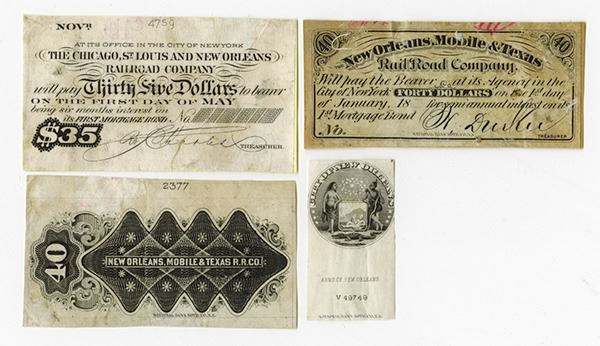 NOVR
4759
AT ITS OFFICE IN THE CITY OF NEW YORK
THE CHICAGO, ST LOUIS AND NEW ORLEANS
RAILROAD COMPANY
will pay Thirty Five Dollars to bearer
ON THE FIRST DAY OF MAY
being six months interest on
its FIRST MORTGAGE BOND No
$35
TREASURER.
40
40
New Orleans, Mobile & Texas
Rail Road Company,
Will pay the Bearer at its Agency in the
City of New York FORTY DOLLARS on the 1st day
of January, 18 for semi annual interest on its
1st Mortgage Bond
No.
TREASURER
NATIONAL BANK NOTE CO. N.Y.
2377
40
NEW ORLEANS, MOBILE & TEXAS R.R. CO.
NATIONAL BANK NOTE CO. N.Y.
CITY OF NEW ORLEANS
ARMS OF NEW ORLEANS
V 49749
NATIONAL BANK NOTE CO. N.Y.